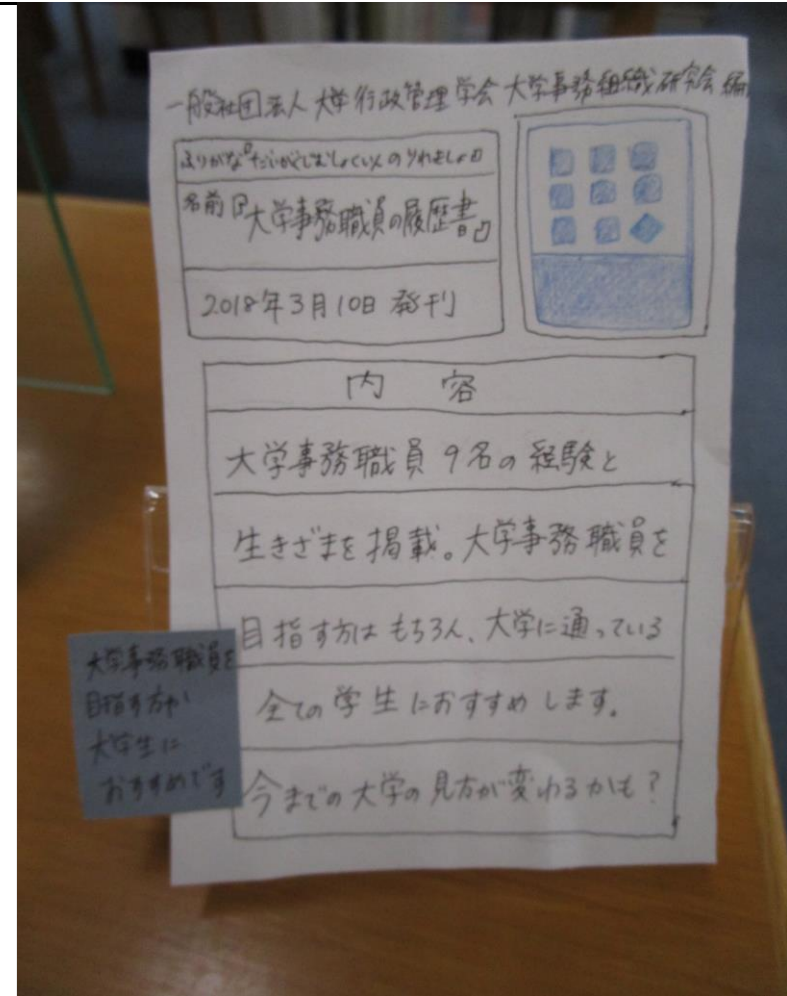 一般社団法人 大学行政管理学会 大学事務組織研究会 編
ふりがな『だいがくじむしょくいんのりれきしょ』
名前『大学事務職員の履歴書』
2018年3月10日 発刊
内 容
大学事務職員 9名の経験と
生きざまを掲載。大学事務職員を
目指す方はもちろん、大学に通っている
全ての学生におすすめします。
今までの大学の見方が変わるかも?
大学事務職員を
目指す方や
大学生に
おすすめです